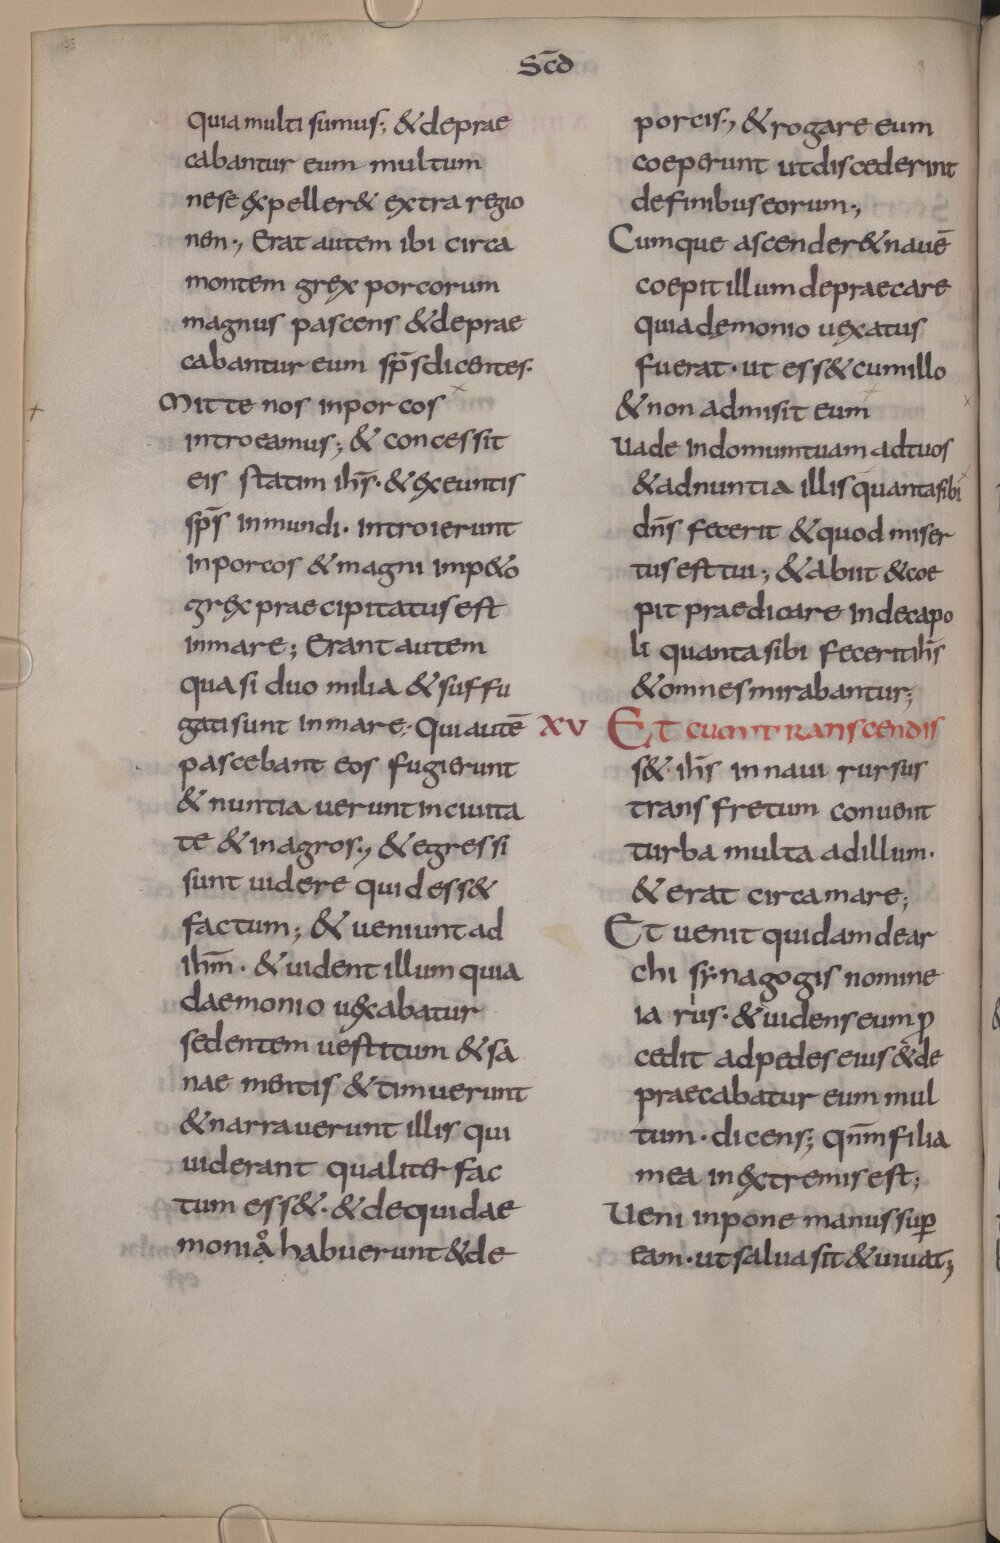 Scd̄
quia multi sumus; & deprae
cabantur eum multum
nese expeller& extra regio
nen·, Erat autem ibi circa
montem grex porcorum
magnus pascens & deprae
cabantur eum sp̄s dicentes·
Mitte nos in porcos
introeamus; & concessit
eis statim ih̄s· & exeuntis
sp̄s inmundi· introierunt
in porcos & magni imp&o
grex praecipitatus est
in mare; Erant autem
quasi duo milia & suffu
gati sunt in mare· Qui autē
pascebant eos fugierunt
& nuntiauerunt in ciuita
te & in agros·, & egressi
sunt uidere quid ess&
factum; & ueniunt ad
ih̄m· & uident illum quia
daemonio uexabatur
sedentem uestitum & sa
nae mentis & timuerunt
& narrauerunt illis qui
uiderant qualiter fac
tum ess&· & de quidae
monia habuerunt & de
porcis·, & rogare eum
coeperunt ut discederint
de finibus eorum·,
Cumque ascender& nauē
coepit illum depraecare
quia demonio uexatus
fuerat· ut ess& cum illo
& non admisit eum
uade in domum tuam ad tuos
& adnuntia illis quanta sibi
dn̄s fecerit & quod miser
tus est tui; & abiit & coe
pit praedicare in decapo
li quanta sibi fecerit ih̄s
& omnes mirabantur;
XV Et cum transcendis
s& ih̄s in naui rursus
trans fretum conuenit
turba multa ad illum·
& erat circa mare;
Et uenit quidam de ar
chi synagogis nomine
iairus· & uidens eum ꝓ
cedit ad pedes eius & de
praecabatur eum mul
tum· dicens; qn̄m filia
mea in extremis est;
Ueni inpone manus suꝑ
eam· ut salua sit & uiuat;